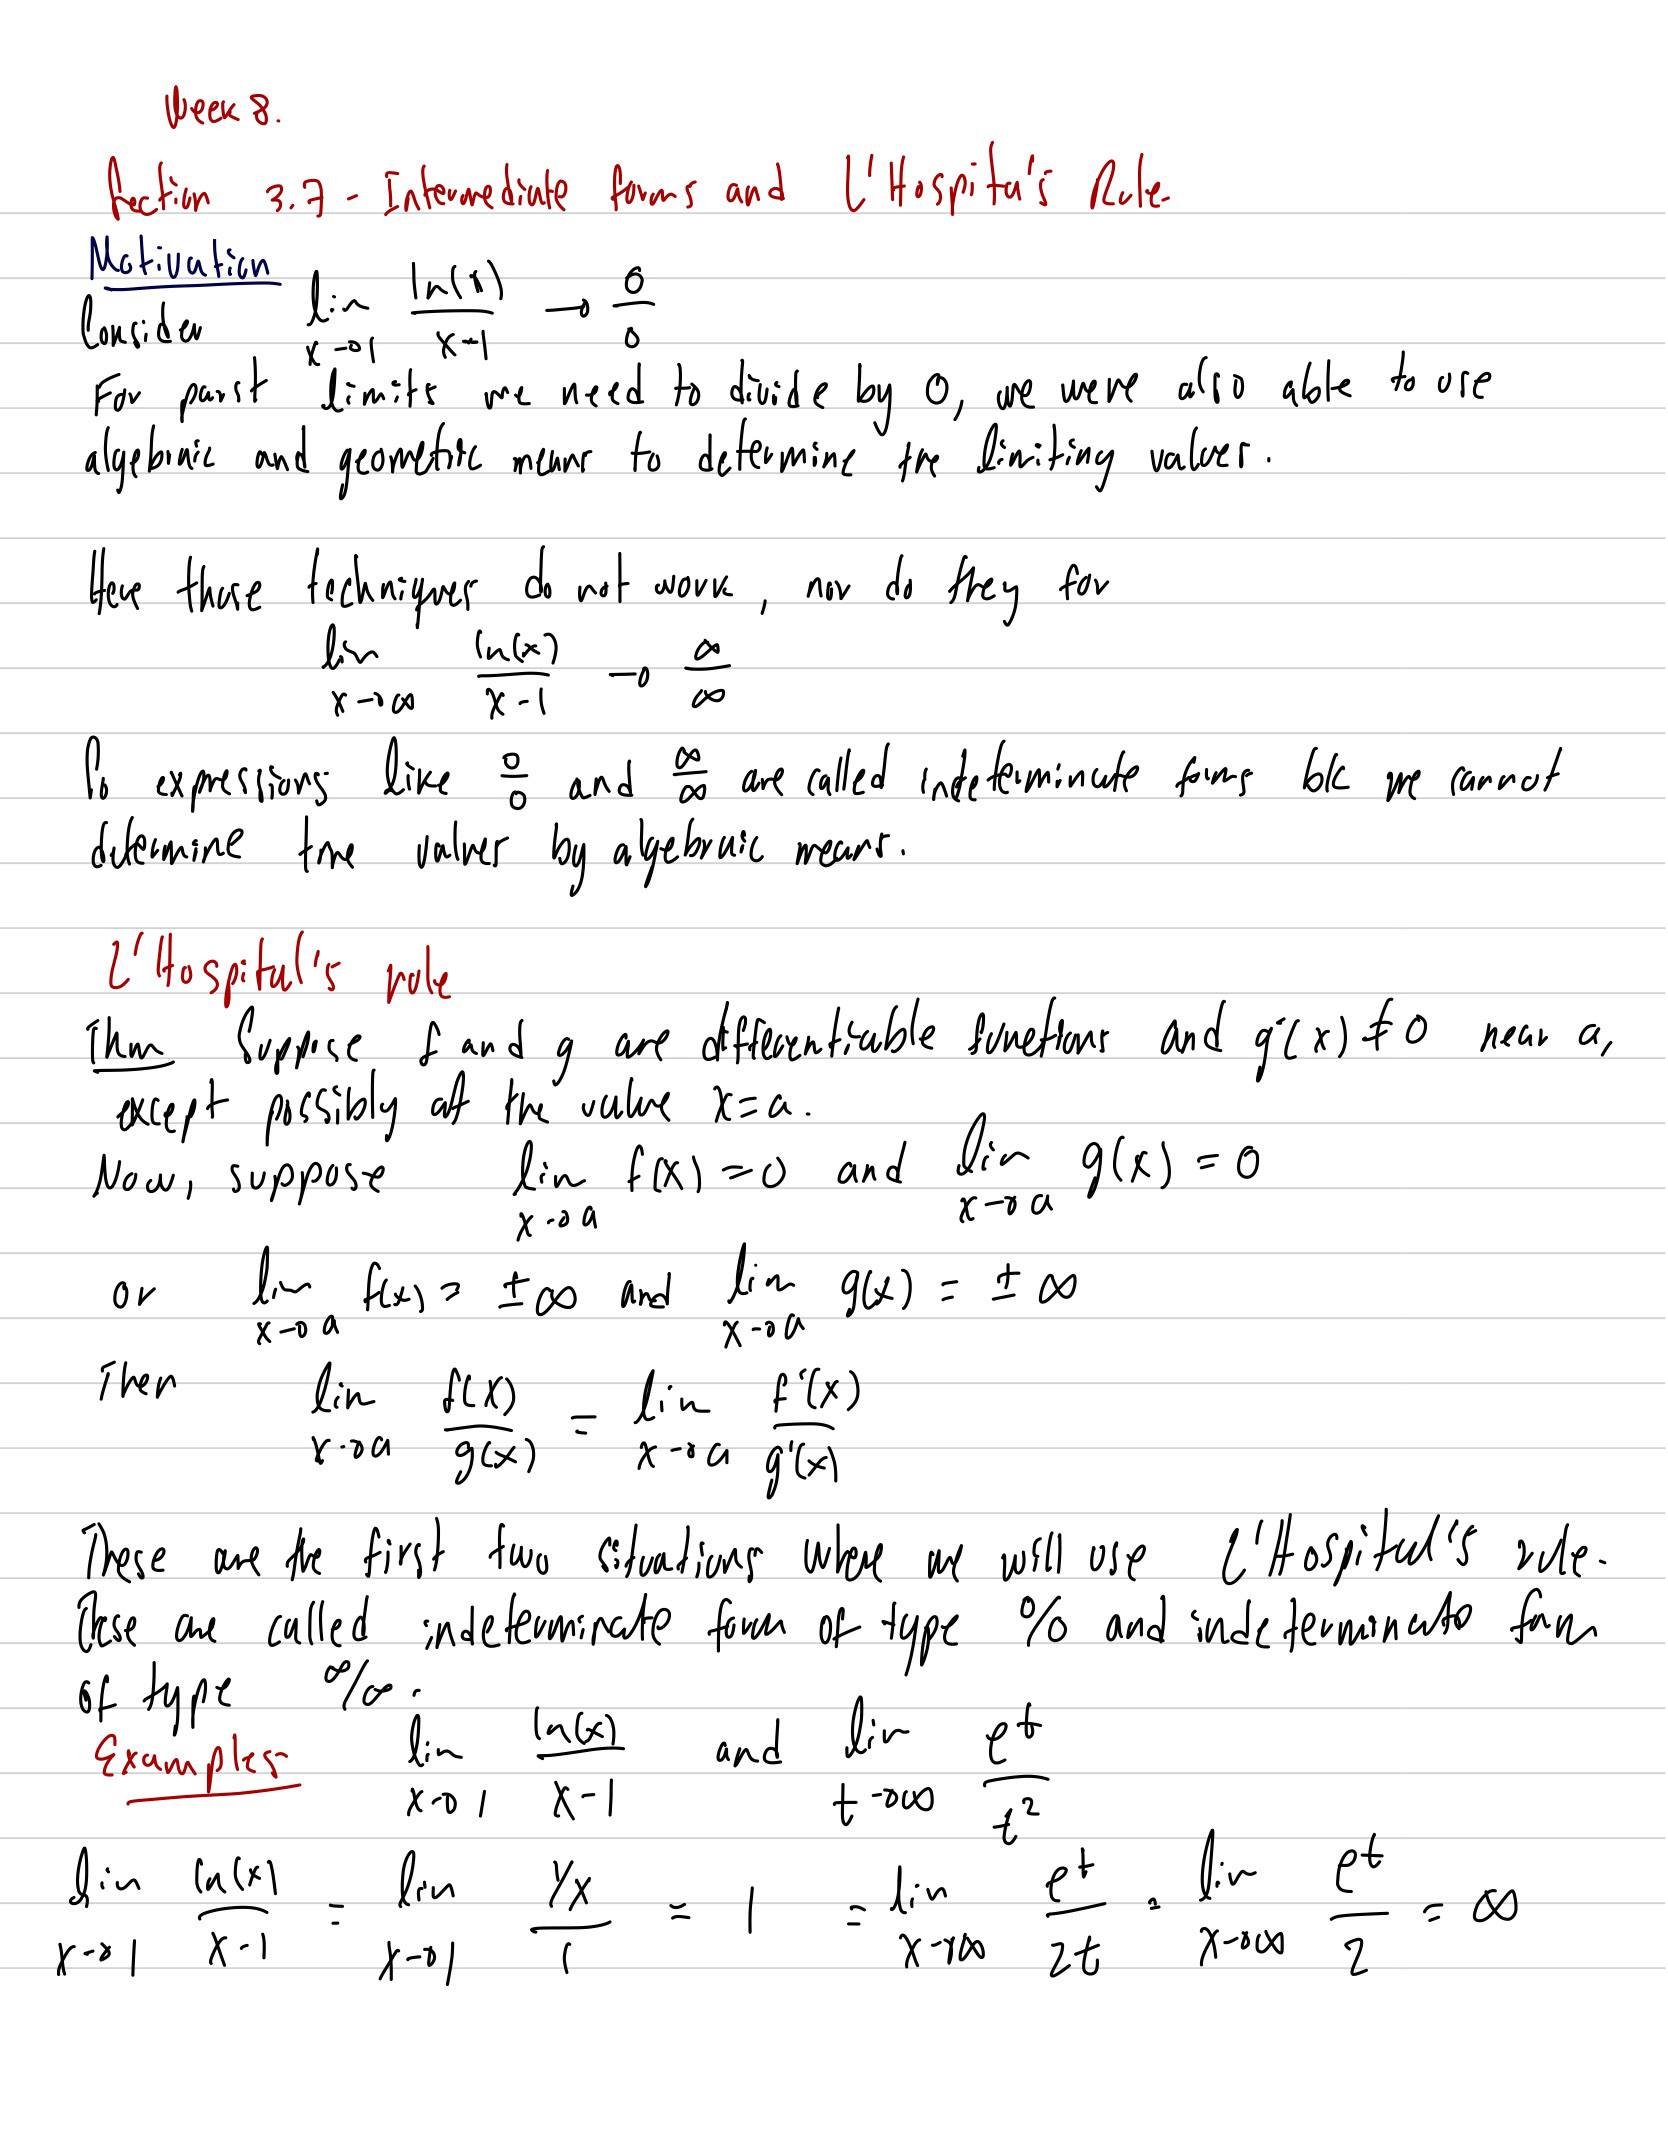 Week 8.
Section 3.7 - Intermediate forms and L'Hospita's Rule.
Motivation
Consider lim x→1 ln(x)/(x-1) → 0/0
For past limits we need to divide by 0, we were also able to use
algebraic and geometric means to determine the limiting values.
Here those techniques do not work, nor do they for
lim x→∞ ln(x)/(x-1) → ∞/∞
So expressions like 0/0 and ∞/∞ are called indeterminate forms b/c we cannot
determine the values by algebraic means.
L'Hospital's rule
Thm Suppose f and g are differentiable functions and g'(x) ≠ 0 near a,
except possibly at the value x=a.
Now, suppose lim x→a f(x) = 0 and lim x→a g(x) = 0
or lim x→a f(x) = ±∞ and lim x→a g(x) = ±∞
Then lim x→a f(x)/g(x) = lim x→a f'(x)/g'(x)
These are the first two situations where we will use L'Hospital's rule.
These are called indeterminate form of type 0/0 and indeterminate form
of type ∞/∞.
Examples lim x→1 ln(x)/(x-1) and lim t→∞ e^t/t^2
lim x→1 ln(x)/(x-1) = lim x→1 (1/x)/1 = 1 = lim x→∞ e^t/2t = lim x→∞ e^t/2 = ∞